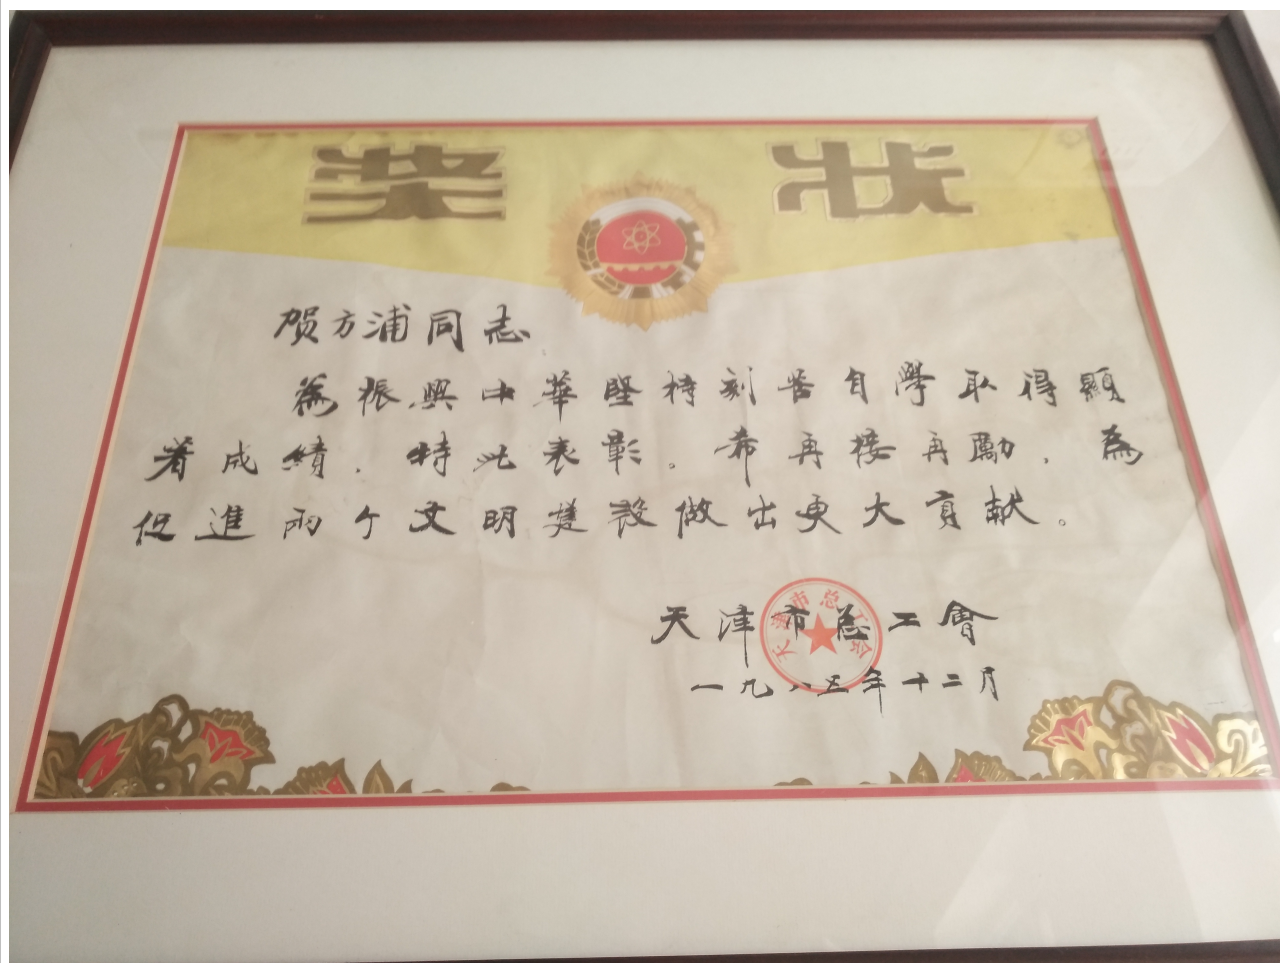 奖 状
贺方浦同志
為振興中華堅持刻苦自學取得顯
著成績．特此表彰。希再接再勵．為
促進兩个文明建設做出更大貢献。
天津市总工會
天津市总工会
一九八五年十二月